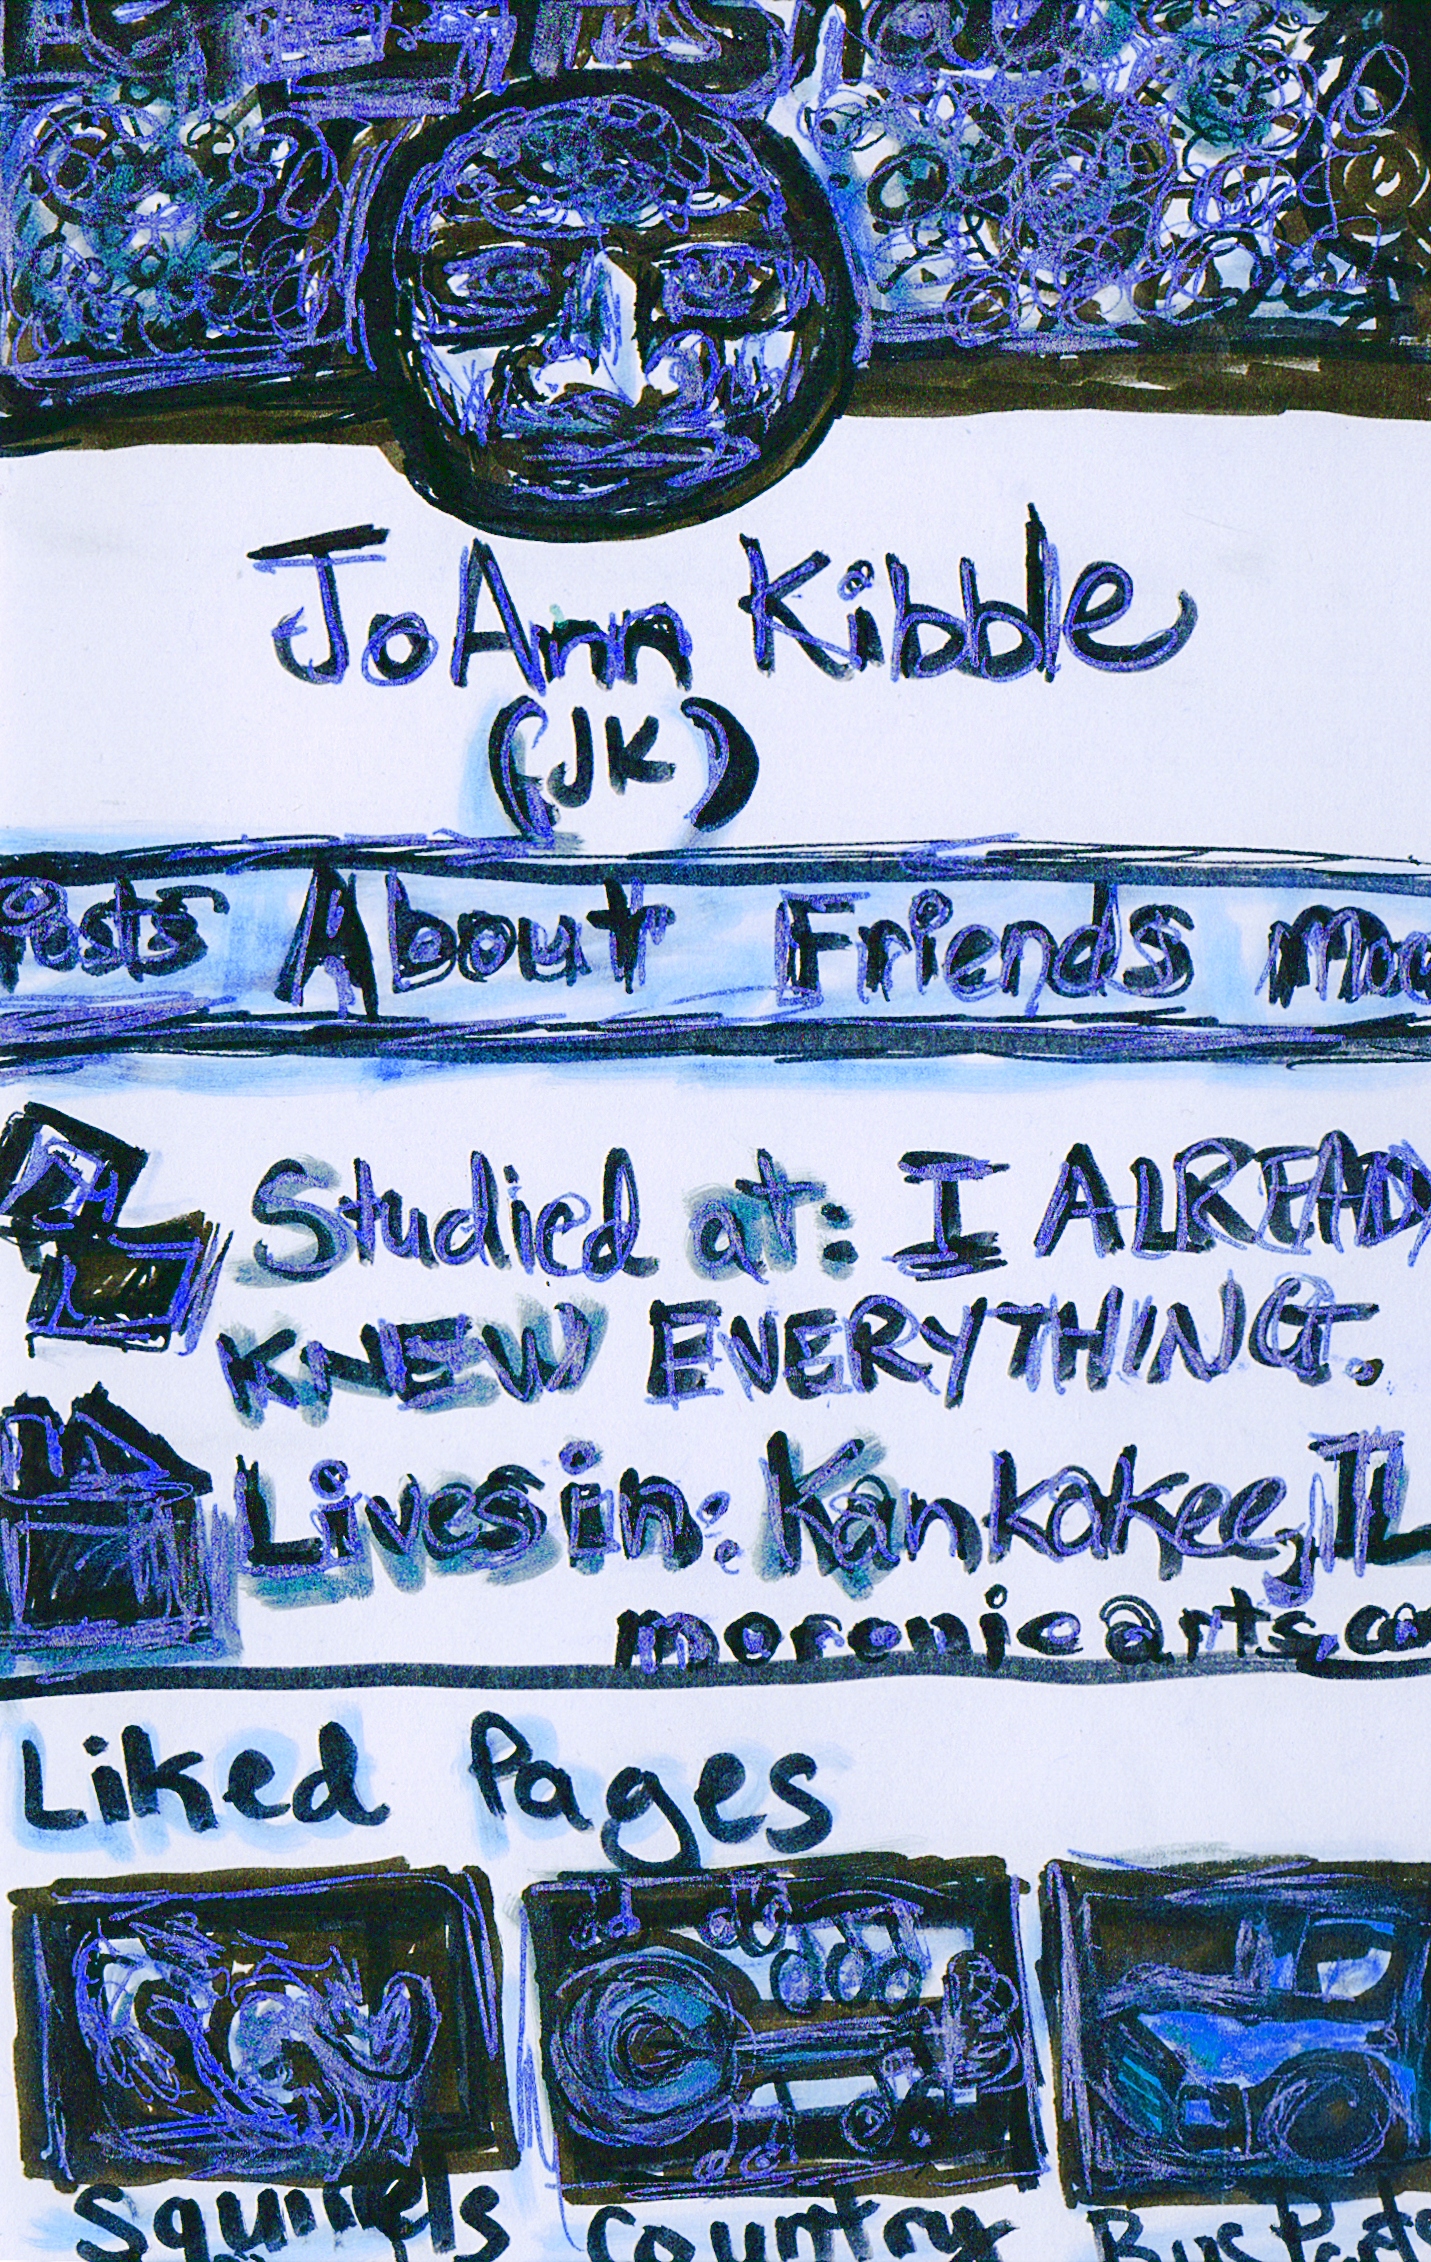 JoAnn Kibble
(JK)
Posts About Friends
Studied at: I ALREADY
KNEW EVERYTHING.
Lives in: Kankakee, IL
moronicarts.com
Liked Pages
Squirrels Country Bus